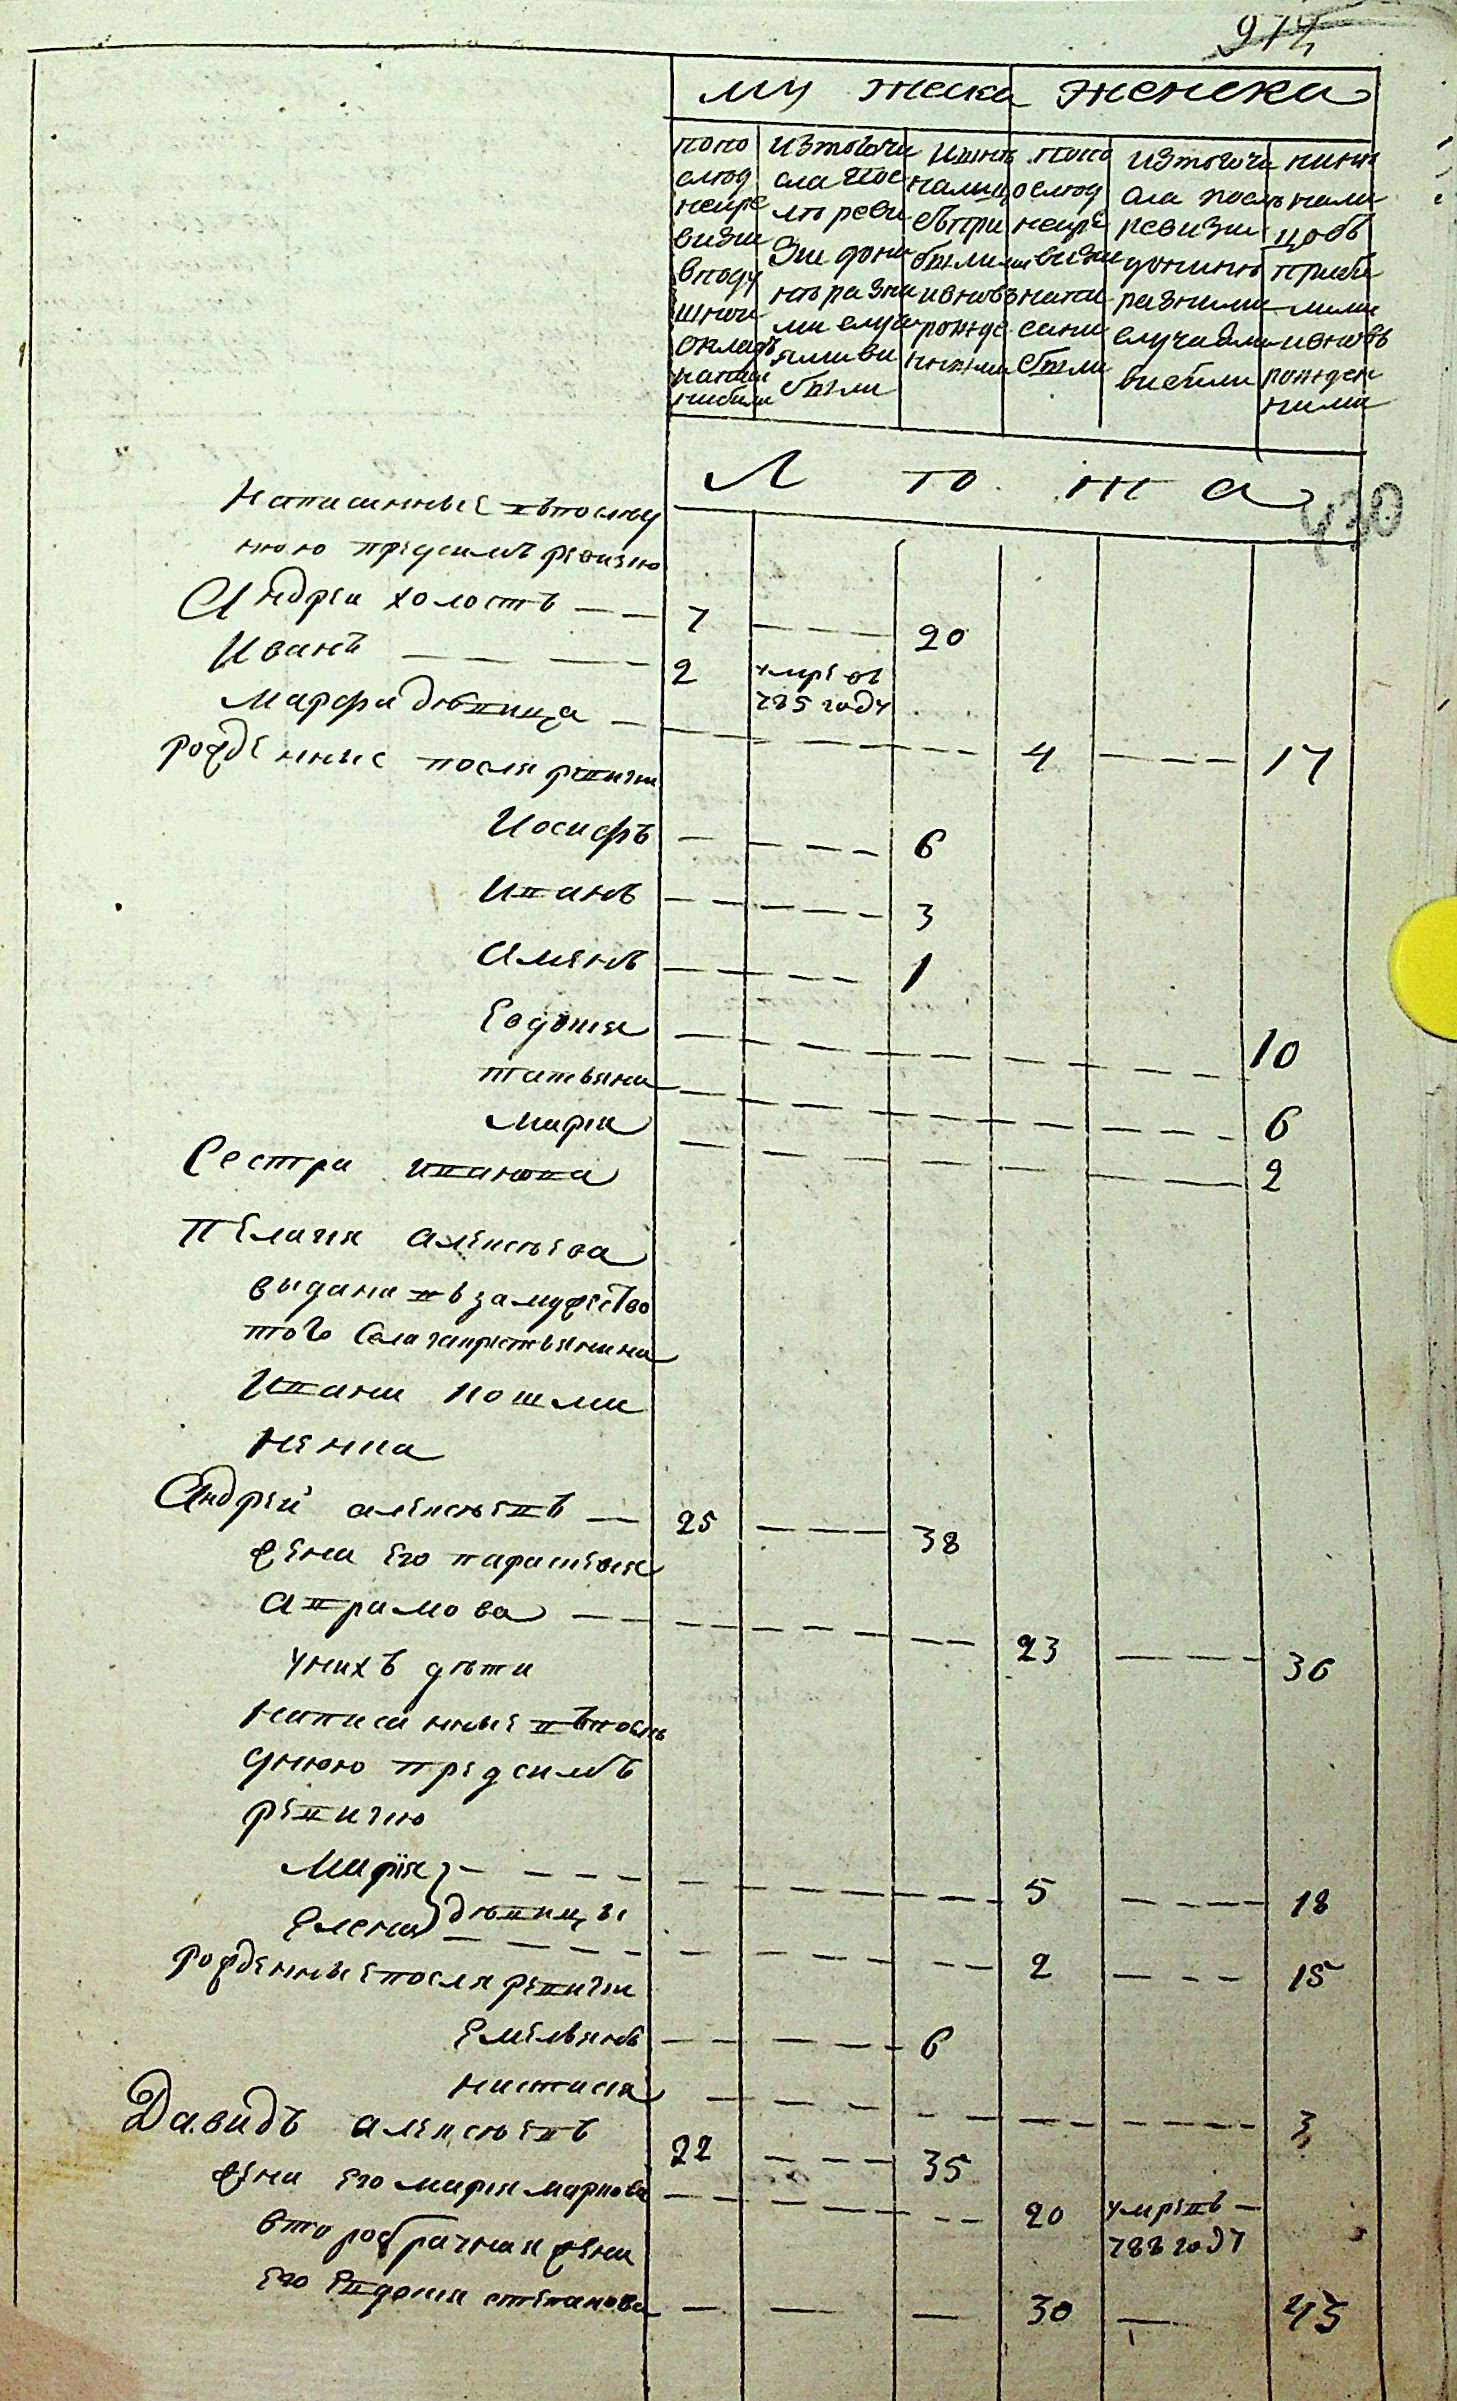 974
му жеска женска
по по следней ревизии в подушной окладъ написаны были
из того числа после ревизии до ныне разными случаями выбыли
и ныне на лицо съ прибылыми и вновь рожденными
по последней ревизии написаны были
из того числа после ревизии до ныне разными случаями выбыли
ныне на лицо съ прибылыми и вновь рожденными
Л ѣ т а
430
написанные въ послед
нюю предсимъ ревизию
Андреи холостъ 7 20
Иванъ 2 умре въ
785 году
Марфа дѣвица 4 17
рожденные после ревизии
Иосифъ 6
Иванъ 3
1
Евдокия 10
татьяна 6
Мария 2
Сестра иванова
Пелагия алексѣева
выдана въ замужество
того села за крестьянина
Ивана
Андрей алексѣевъ 25 38
жена его парасковия
аврамова 23 36
у нихъ дѣти
написанные въ послѣ
днюю предсимъ
ревизию
Мария 5 18
Елена дѣвицы 2 15
рожденные после ревизии
Емельянъ 6
настасия 3
Давидъ алексѣевъ 22 35
жена его мария маркова 20 умре въ
788 году
второбрачная жена
его Евдокия степанова 30 43